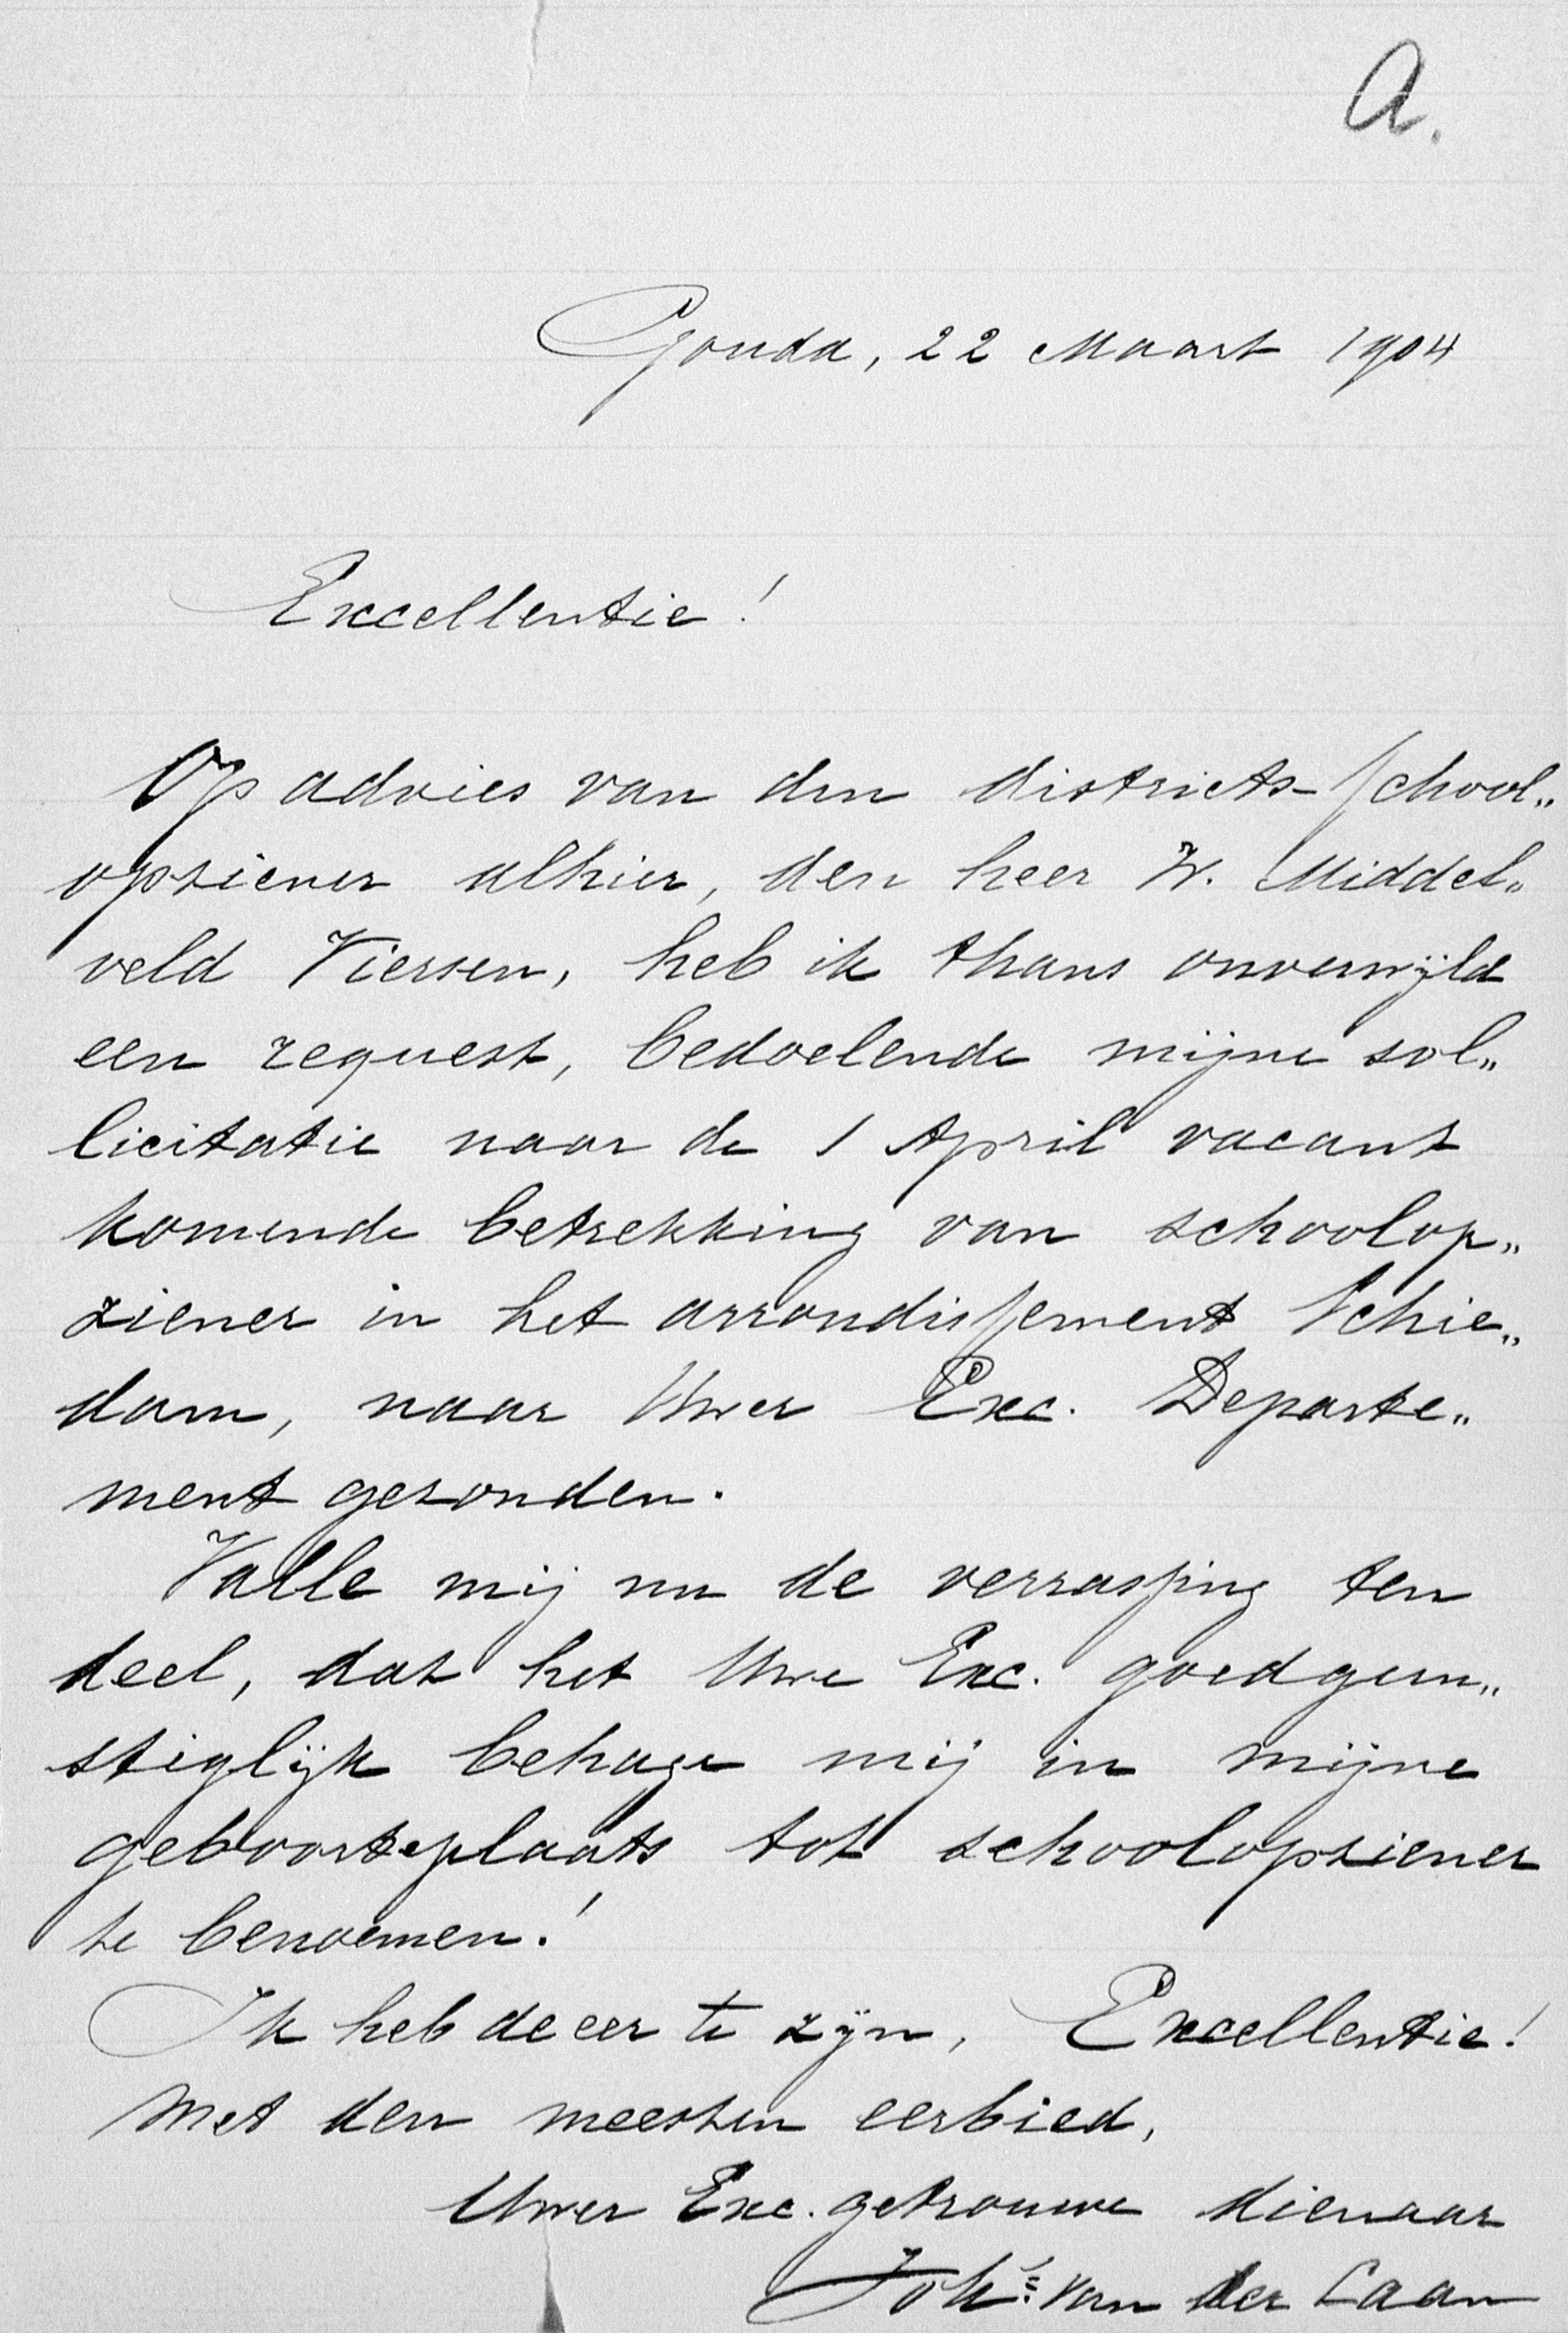 a.
Gouda, 22 Maart 1904
Excellentie!
Op advies van den districts-school„
opziener alhier, den heer W. Middel„
veld Viersen, heb ik thans onverwijld
een request, bedoelende mijne sol„
licitatie naar de 1 April vacant
komende betrekking van schoolop„
ziener in het arrondissement Schie„
dam, naar Uwer Exc. Departe„
ment gezonden.
Valle mij nu de verrassing ten
deel, dat het Uwe Exc. goedgun„
stiglijk behage mij in mijne
geboorteplaats tot schoolopziener
te benoemen!
Ik heb de eer te zijn, Excellentie!
met den meesten eerbied,
Uwer Exc. getrouwe dienaar
Johs: van der Laan